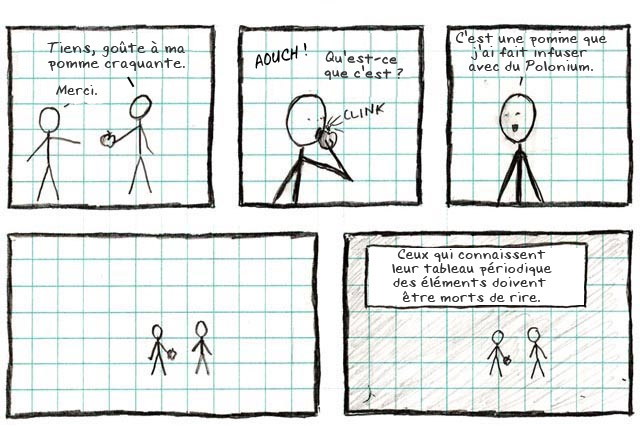 Tiens, goûte à ma
pomme craquante.
Merci.
AOUCH !
Qu'est-ce
que c'est ?
CLINK
C'est une pomme que
j'ai fait infuser
avec du Polonium.
Ceux qui connaissent
leur tableau périodique
des éléments doivent
être morts de rire.